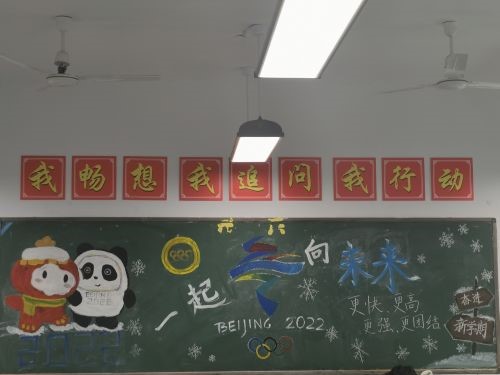 我畅想 我追问 我行动
一起向未来
BEIJING 2022
更快、更高
更强、更团结
BEIJING
2022
2022
奋进
新学期